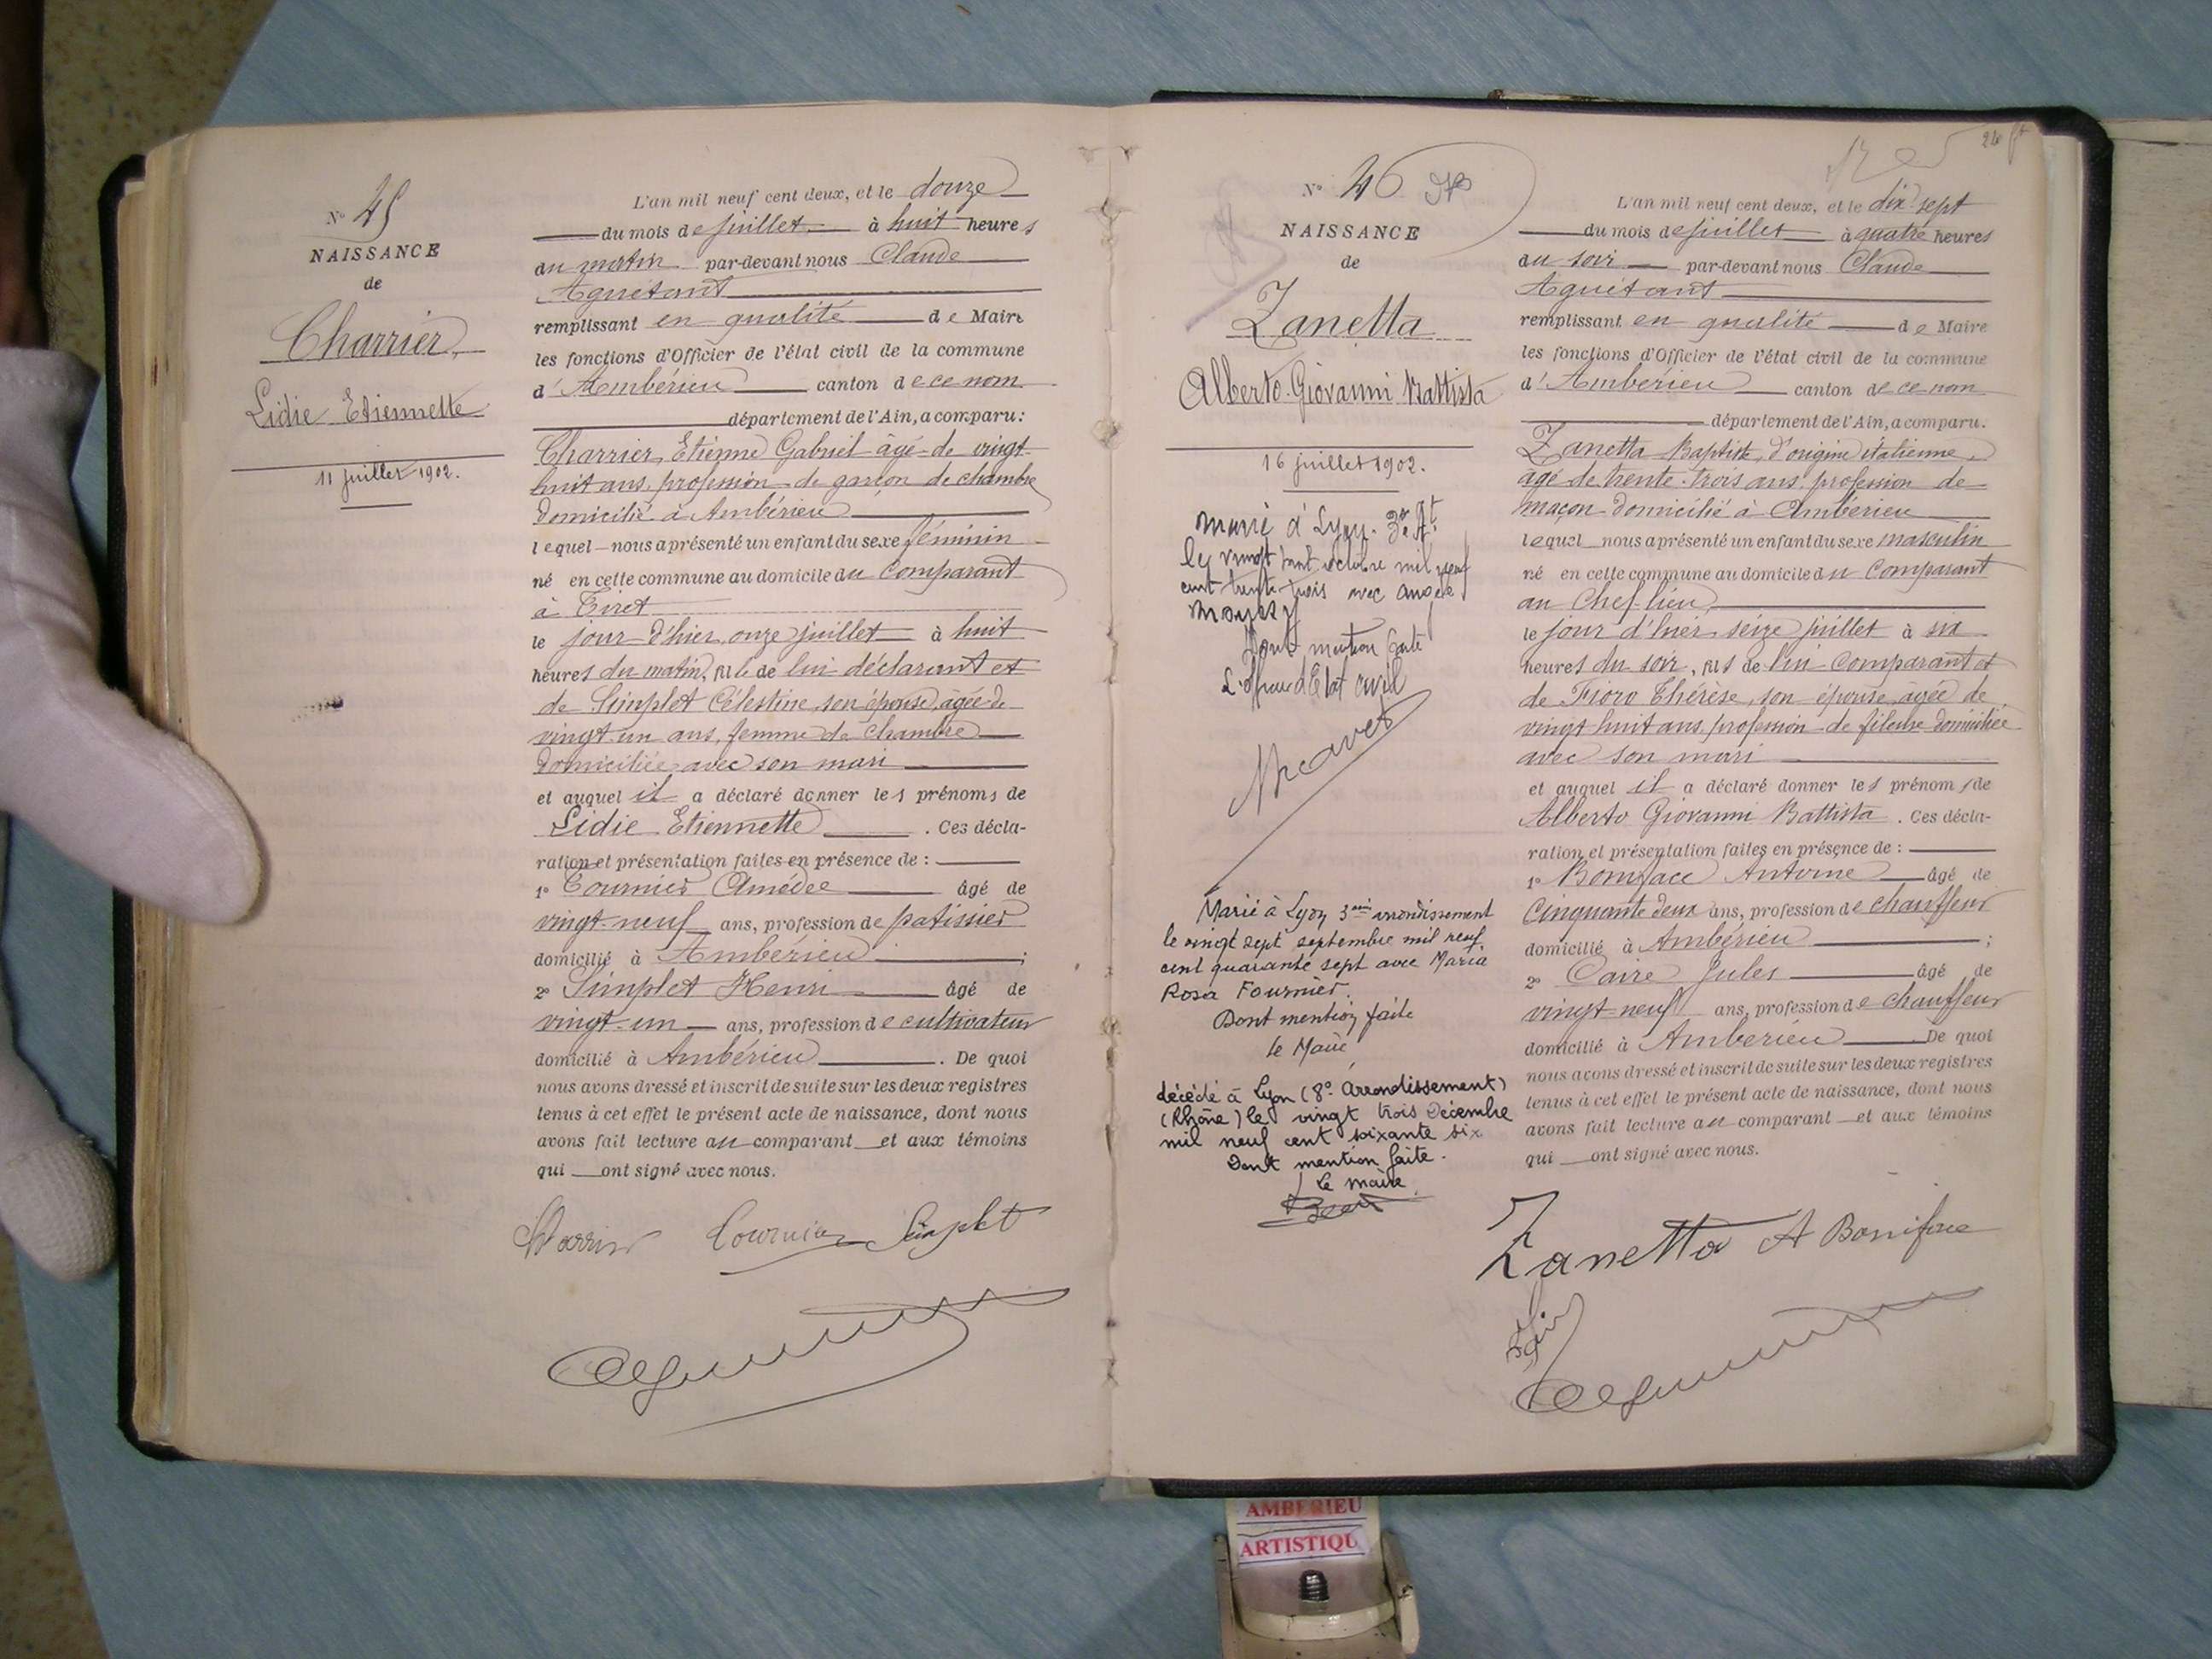 N° 45
NAISSANCE
de
Charrier
Lidie Etiennette
11 juillet 1902.
L'an mil neuf cent deux, et le douze
du mois de juillet à huit heures
du matin par-devant nous Claude
Aguétant
remplissant en qualité de Maire
les fonctions d'Officier de l'état civil de la commune
d'Ambérieu canton de ce nom
département de l'Ain, a comparu:
Charrier, Etienne Gabriel âgé de vingt-
huit ans, profession de garçon de chambre
domicilié à Ambérieu
lequel nous a présenté un enfant du sexe féminin
né en cette commune au domicile du comparant
à Tiret
le jour d'hier, onze juillet à huit
heures du matin, fille de lui déclarant et
de Simplet Célestine, son épouse, âgée de
vingt-un ans, femme de chambre
domiciliée avec son mari
et auquel il a déclaré donner les prénoms de
Lidie Etiennette. Ces décla-
ration et présentation faites en présence de :
1° Tournier Amédée âgé de
vingt-neuf ans, profession de patissier
domicilié à Ambérieu ;
2° Simplet Henri âgé de
vingt-un ans, profession de cultivateur
domicilié à Ambérieu. De quoi
nous avons dressé et inscrit de suite sur les deux registres
tenus à cet effet le présent acte de naissance, dont nous
avons fait lecture au comparant et aux témoins
qui ont signé avec nous.
Charrier Tournier Simplet
N° 46
NAISSANCE
de
Zanetta
Alberto Giovanni Battista
16 juillet 1902.
Marié à Lyon 3e At
le vingt huit octobre mil neuf
cent trente trois avec
Dont mention faite
L'officier d'Etat civil
Marié à Lyon 3eme arrondissement
le vingt sept septembre mil neuf
cent quarante sept avec Maria
Rosa Fournier.
Dont mention faite
le Maire
décédé à Lyon (8° Arrondissement)
(Rhône) le vingt trois Décembre
mil neuf cent soixante six
Dont mention faite.
Le maire
L'an mil neuf cent deux, et le dix sept
du mois de juillet à quatre heures
du soir par-devant nous Claude
Aguétant
remplissant en qualité de Maire
les fonctions d'Officier de l'état civil de la commune
d'Ambérieu canton de ce nom
département de l'Ain, a comparu.
Zanetta Baptiste, d'origine italienne,
âgé de trente-trois ans, profession de
maçon domicilié à Ambérieu
lequel nous a présenté un enfant du sexe masculin
né en cette commune au domicile du comparant
au Chef-lieu
le jour d'hier, seize juillet à six
heures du soir, fils de lui comparant et
de Fioro Thérèse, son épouse, âgée de
vingt huit ans, profession de fileuse domiciliée
avec son mari
et auquel il a déclaré donner les prénoms de
Alberto Giovanni Battista. Ces décla-
ration et présentation faites en présence de :
1° Boniface Antoine âgé de
Cinquante deux ans, profession de chauffeur
domicilié à Ambérieu ;
2° Caire Jules âgé de
vingt-neuf ans, profession de chauffeur
domicilié à Ambérieu. De quoi
nous avons dressé et inscrit de suite sur les deux registres
tenus à cet effet le présent acte de naissance, dont nous
avons fait lecture au comparant et aux témoins
qui ont signé avec nous.
Zanetta A Boniface
AMBERIEU
ARTISTIQU